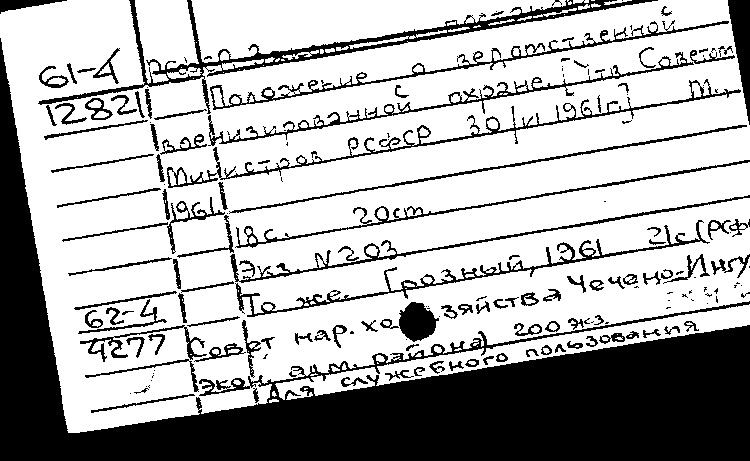 61-4 РСФСР Законы и постановления
12821 Положение о ведомственной
военизированной охране. [Утв Советом
Министров РСФСР 30/VI 1961г.] М.,
1961.
18с. 20ст.
Экз. N203
То же. Грозный, 1961 21с (РСФ
62-4
4277 Совет нар. хозяйства Чечено-Ингу
экон. адм. района) 200 экз.
Для служебного пользования